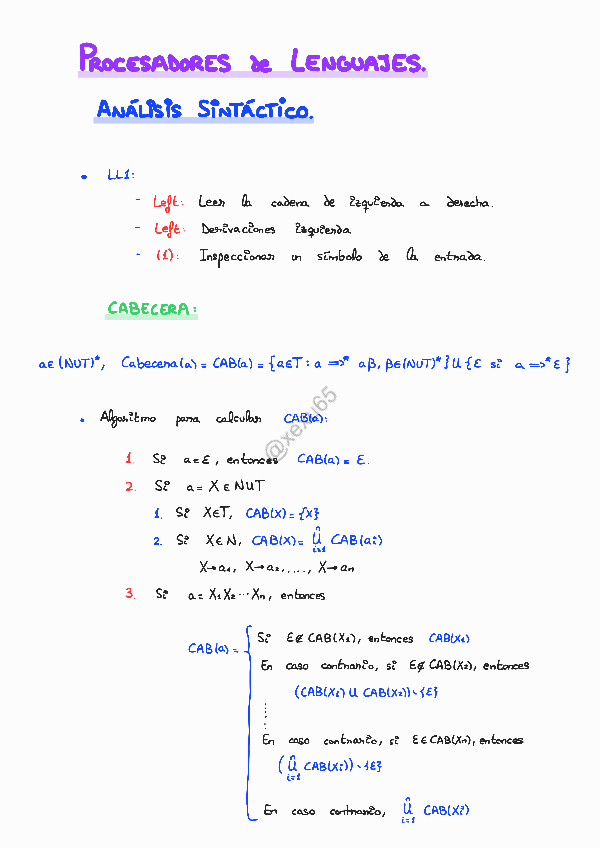 PROCESADORES de LENGUAJES.
ANÁLISIS SINTÁCTICO.
• LL1:
- Left: Leer la cadena de izquierda a derecha.
- Left: Derivaciones izquierda
- (1): Inspeccionar un símbolo de la entrada.
CABECERA:
a∈(NUT)*, Cabecera(a) = CAB(a) = {a∈T : a =>* aβ, β∈(NUT)*} U {ε si a =>* ε}
• Algoritmo para calcular CAB(a):
@xexu65
1. Si a=ε, entonces CAB(a) = ε.
2. Si a = X ∈ NUT
1. Si X∈T, CAB(X) = {x}
2. Si X∈N, CAB(X) = ⋃ⁿᵢ₌₁ CAB(aᵢ)
X→a₁, X→a₂,...., X→an
3. Si a = X₁X₂···Xn, entonces
CAB(a) =
Si ε∉CAB(X₁), entonces CAB(X₁)
En caso contrario, si ε∉CAB(X₂), entonces
(CAB(X₁) U CAB(X₂))-{ε}
En caso contrario, si ε∈CAB(Xn), entonces
(⋃ⁿᵢ₌₁ CAB(Xᵢ))-{ε}
En caso contrario, ⋃ⁿᵢ₌₁ CAB(Xᵢ)